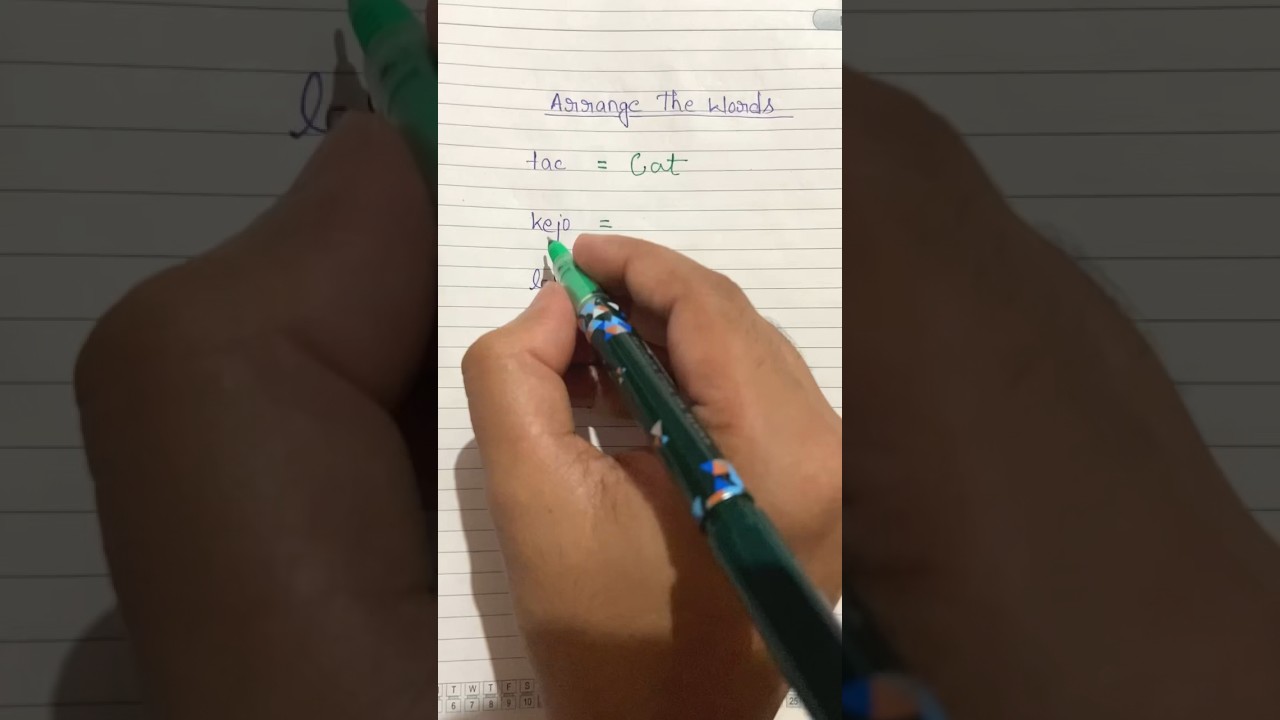 Arrange The Words
tac = Cat
kejo =
T W T F S
6 7 8 9 10
25